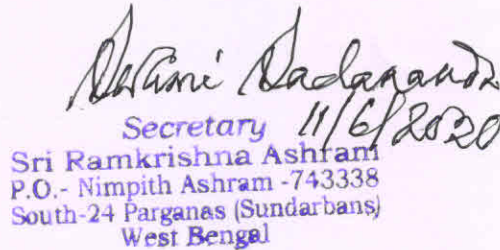 Swami Sadananda
11/6/2020
Secretary
Sri Ramkrishna Ashram
P.O.- Nimpith Ashram -743338
South-24 Parganas (Sundarbans)
West Bengal